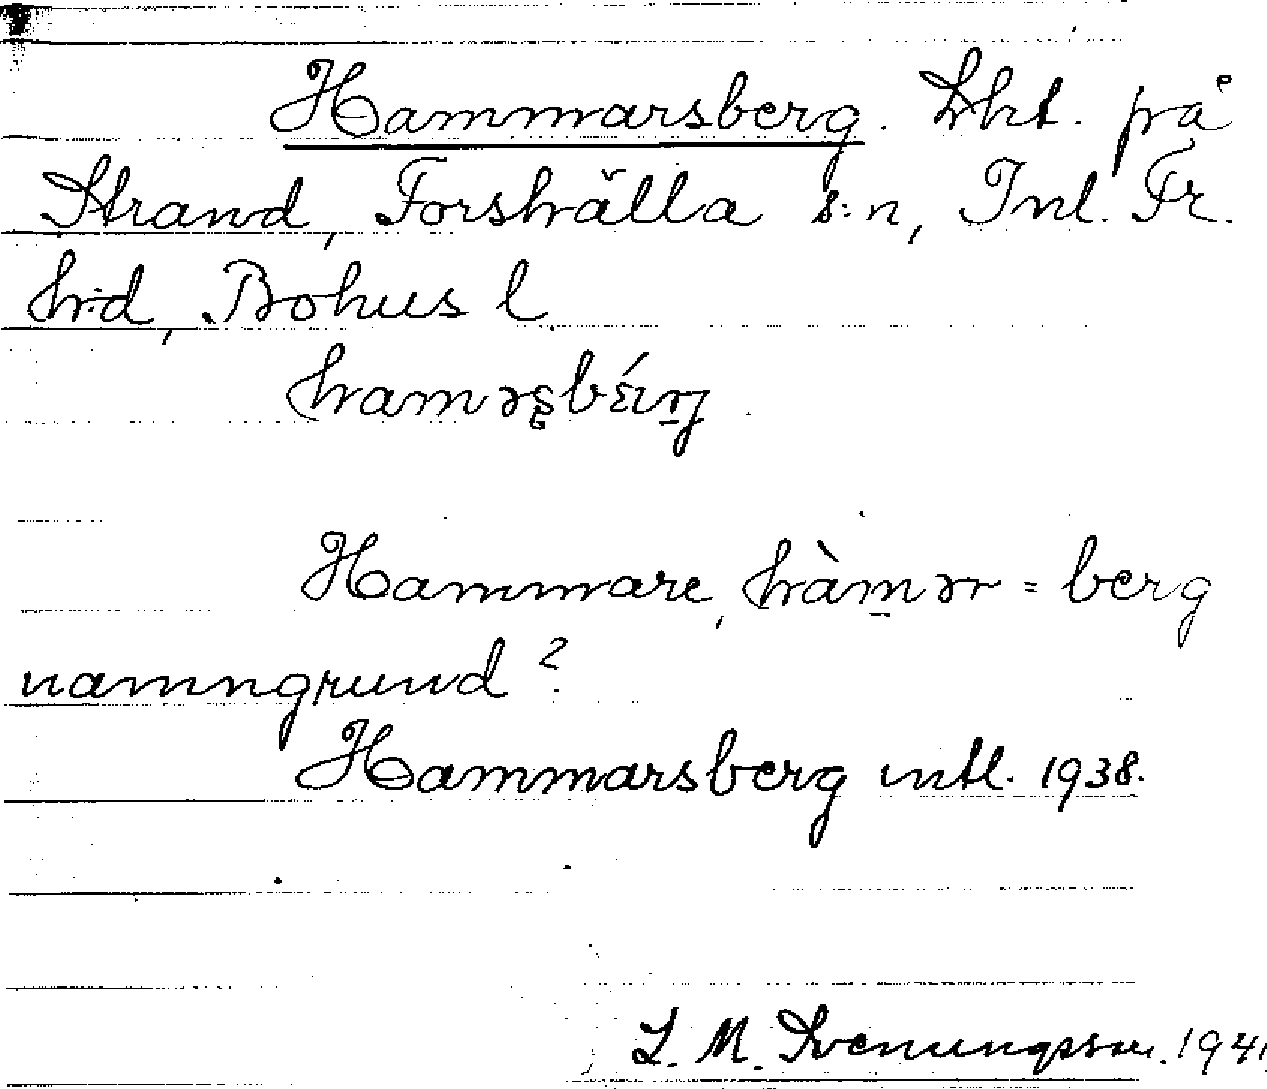 Hammarsberg. Lht. på
Strand, Forshälla s:n, Inl. Fr.
hrd, Bohus l
hamərs̨bǽrj
Hammare, hàmər = berg
namngrund?
Hammarsberg intl. 1938.
L. M. Svenungsson. 1941